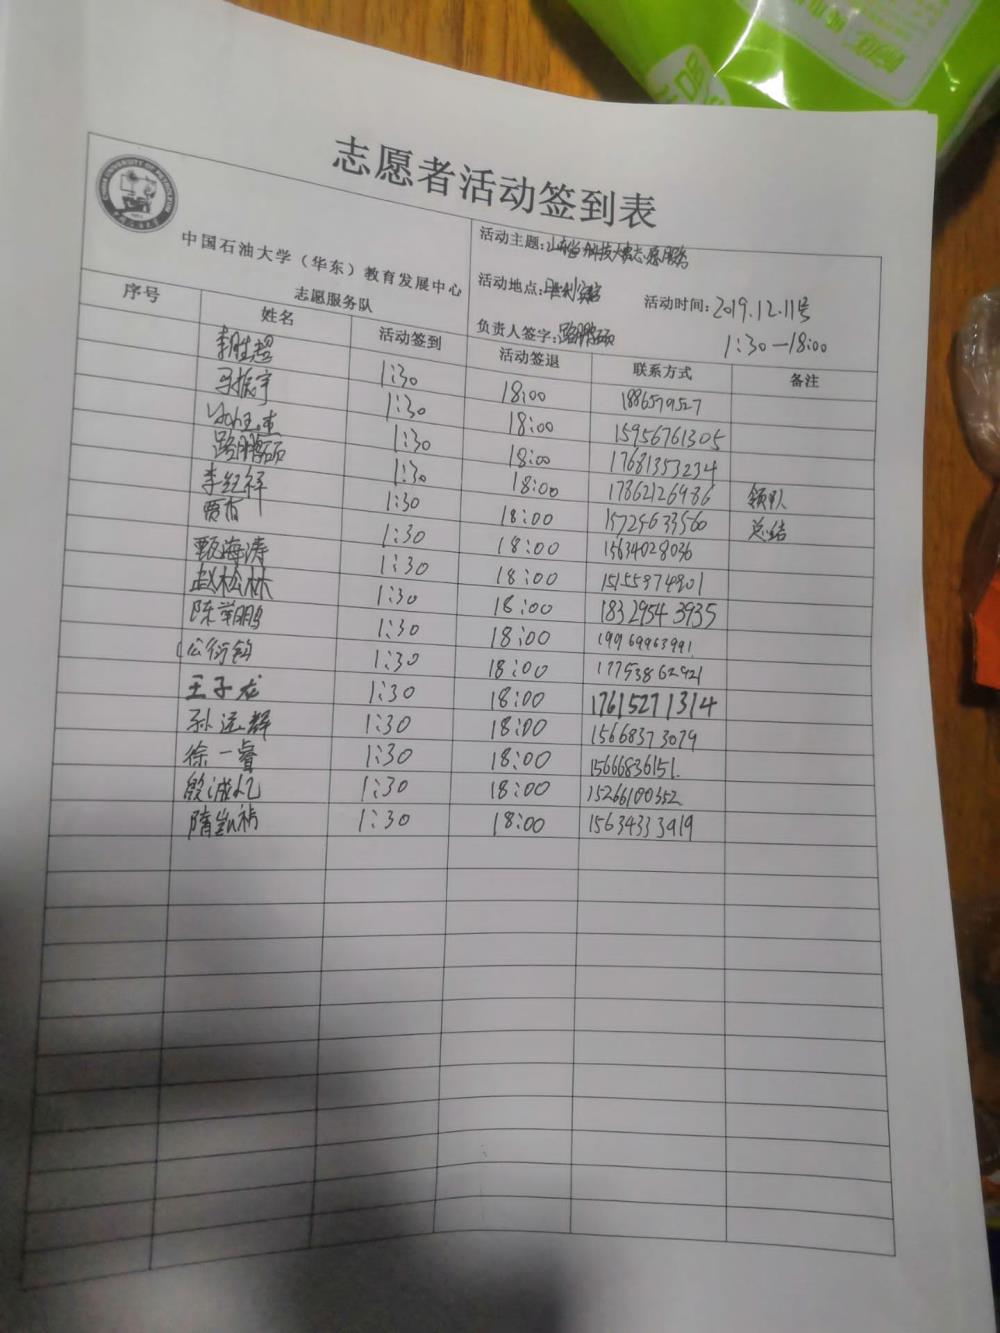 志愿者活动签到表
中国石油大学（华东）教育发展中心
志愿服务队
活动主题：山东省科技大赛志愿服务
活动地点：胜利宾馆
活动时间：2019.12.11号
负责人签字：路鹏硕
1:30—18:00
序号 姓名 活动签到 活动签退 联系方式 备注
李胜超 1:30 18:00 1886579527
马振宇 1:30 18:00 15956761305
1:30 18:00 17681353234
路鹏硕 1:30 18:00 17862126986 领队
李红祥 1:30 18:00 15725633560 总结
贾 1:30 18:00 15634028036
甄海涛 1:30 18:00 15155974901
赵松林 1:30 18:00 18329543935
陈 鹏 1:30 18:00 19969963991
公衍钧 1:30 18:00 17753862921
王子龙 1:30 18:00 17615271314
孙运辉 1:30 18:00 15668373079
徐一睿 1:30 18:00 15666836151.
殷诚忆 1:30 18:00 15266100352
隋凯祯 1:30 18:00 15634333919